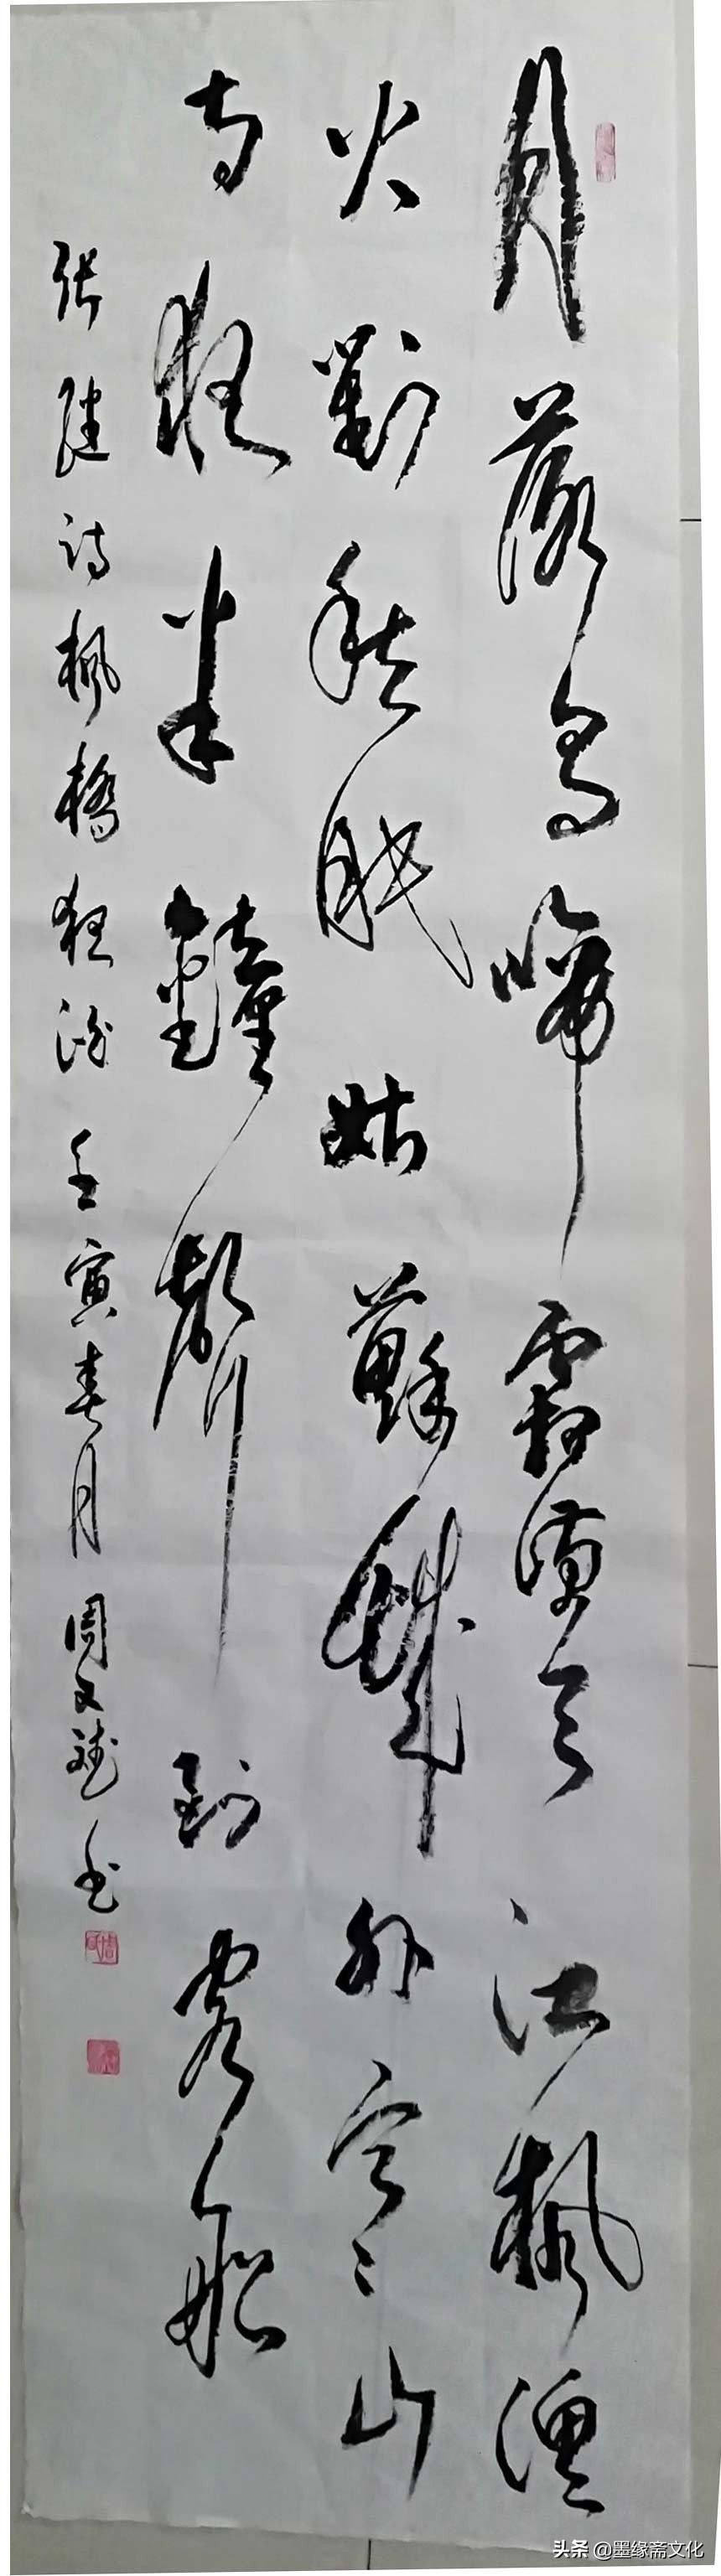 月落烏啼霜滿天江楓漁
火對愁眠姑蘇城外寒山
寺夜半鐘聲到客船
张继诗枫橋夜泊壬寅春月周文斌书
头条 @墨缘斋文化